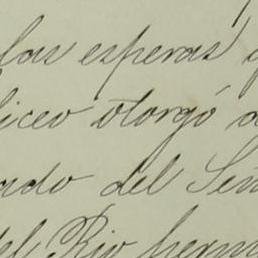 las esperas
liceo otorgó a
ado del Señ
del Rio herm